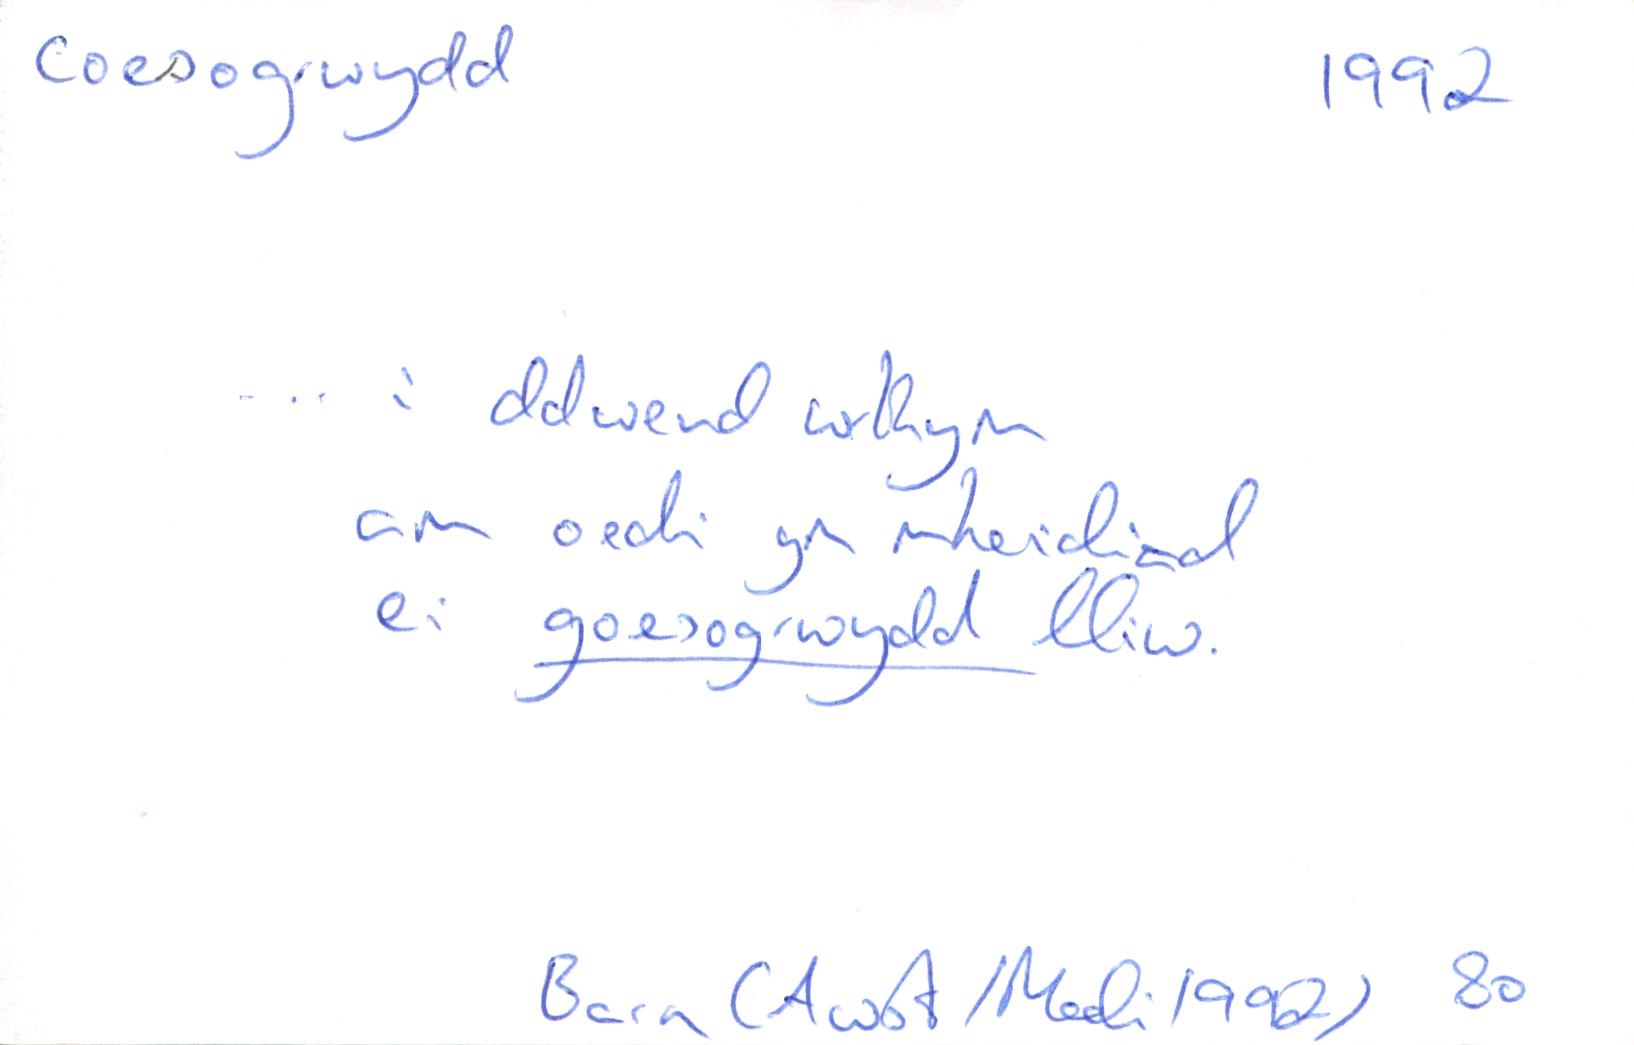 Coesogrwydd 1992
... i ddweud wrthym
am oedi yn mheidiad
ei goesogrwydd lliw.
Barn (Awst/Medi 1992) 80